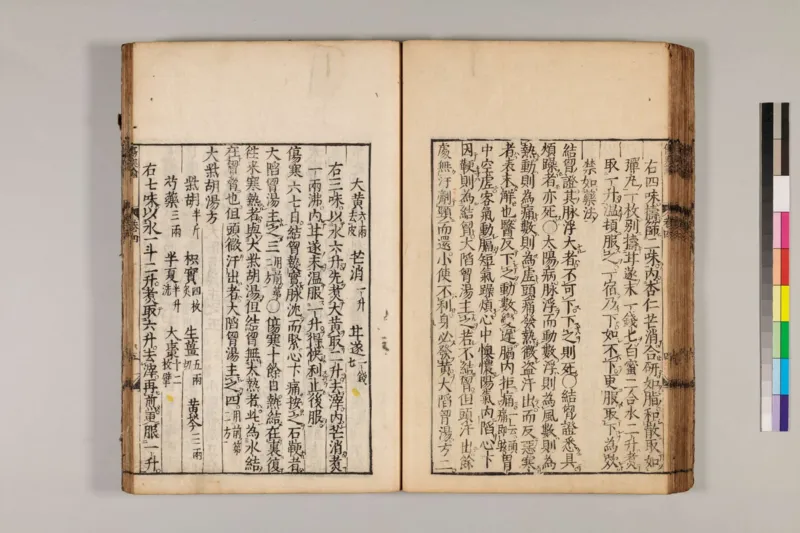 右四味擣篩二味内杏仁芒消合研如脂和散取如
彈丸一枚別擣甘遂末一錢匕白蜜二合水二升煑
取一升温頓服之一宿乃下如不下更服取下為效
禁如藥法
結胷證其脉浮大者不可下下之則死○結胷證悉具
煩躁者亦死○太陽病脉浮而動數浮則為風數則為
熱動則為痛數則為虛頭痛發熱微盗汗出而反惡寒
者表未解也醫反下之動數變遲膈内拒痛一云頭痛即眩胃
中空虛客氣動膈短氣躁煩心中懊憹陽氣内陷心下
因鞕則為結胷大陷胷湯主之若不結胷但頭汗出餘
處無汗劑頸而還小便不利身必發黄大陷胷湯方二
大黄六兩去皮 芒消一升 甘遂一錢匕
右三味以水六升先煑大黄取二升去滓内芒消煑
一兩沸内甘遂末温服一升得快利止後服
傷寒六七日結胷熱實脉沈而緊心下痛按之石鞕者
大陷胷湯主之三用前第二方○傷寒十餘日熱結在裏復
徃來寒熱者與大茈胡湯但結胷無大熱者此為水結
在胷脅也但頭微汗出者大陷胷湯主之四用前第二方
大茈胡湯方
茈胡半斤 枳實四枚炙 生薑五兩切 黄芩三兩
芍藥三兩 半夏半升洗 大棗十二枚擘
右七味以水一斗二升煑取六升去滓再煎温服一升